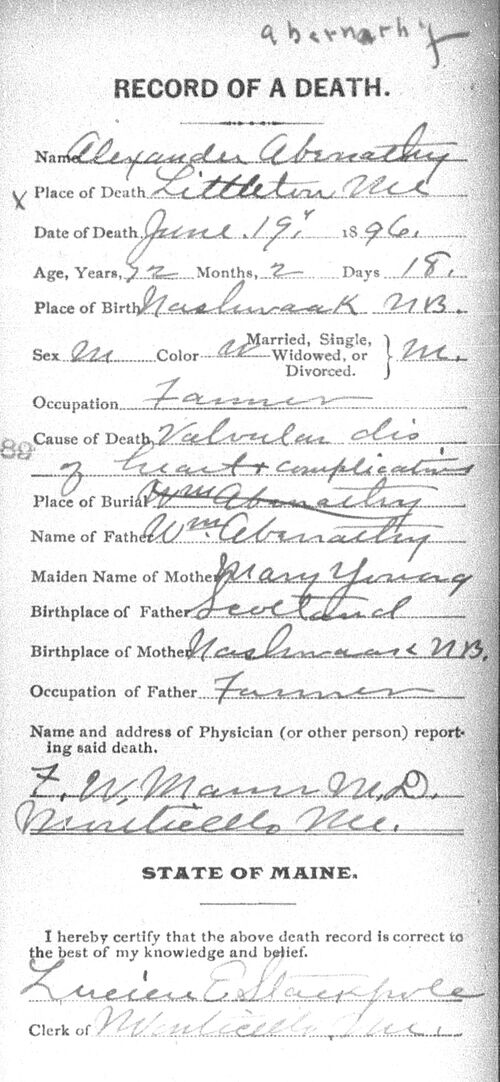 abernathy
RECORD OF A DEATH.
Name Alexander Abernathy
X Place of Death Littleton Me
Date of Death June 19, 1896.
Age, Years, 72 Months, 2 Days 18.
Place of Birth Nashwaak NB.
Sex M Color W Married, Single, Widowed, or Divorced. } M.
Occupation Farmer
Cause of Death, Valvular dis
89
of heart & complications
Place of Burial Wm Abernathy
Name of Father Wm. Abernathy
Maiden Name of Mother Mary Young
Birthplace of Father Scotland
Birthplace of Mother Nashwaak NB.
Occupation of Father Farmer
Name and address of Physician (or other person) report-
ing said death.
F. W. Mann M.D.
Monticello Me.
STATE OF MAINE.
I hereby certify that the above death record is correct to
the best of my knowledge and belief.
Lucien E Stackpole
Clerk of Monticello, Me.